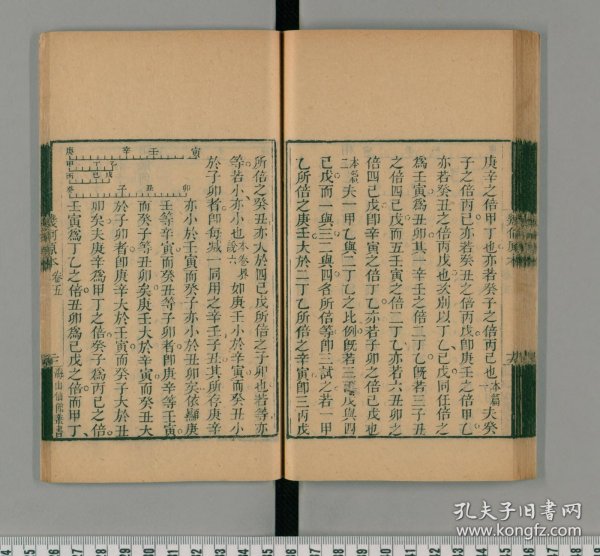 庚辛之倍甲丁也亦若癸子之倍丙已也本篇一夫癸
子之倍丙已亦若癸丑之倍丙戊也卽庚壬之倍甲乙
亦若癸丑之倍丙戊也次別以丁乙已戊同任倍之
爲壬寅爲丑卯其一辛壬之倍二丁乙旣若三子丑
之倍四已戊而五壬寅之倍二丁乙亦若六丑卯之
倍四已戊卽辛寅之倍丁乙亦若子卯之倍已戊也
本篇二夫一甲乙與二丁乙之比例旣若三丙戊與四
已戊而一與三二與四各所倍等卽三試之若一甲
乙所倍之庚壬大於二丁乙所倍之辛寅卽三丙戊
所倍之癸丑亦大於四已戊所倍之子卯也若等亦
等若小亦小也本卷界說六如庚壬小於辛寅而癸丑小
於子卯者卽每減一同用之辛壬子丑其所存庚辛
亦小於壬寅而癸子亦小於丑卯矣依顯庚
壬等辛寅而癸丑等子卯者卽庚辛等壬寅
而癸子等丑卯矣庚壬大於辛寅而癸丑大
於子卯者卽庚辛大於壬寅而癸子大於丑
卯矣夫庚辛爲甲丁之倍癸子爲丙已之倍
壬寅爲丁乙之倍丑卯爲已戊之倍而甲丁
庚 辛 壬 寅
甲 丁
丙 已 戊
癸 子 丑 卯
幾何原本 卷五
三
海山仙館叢書
孔夫子旧书网
www.kongfz.com